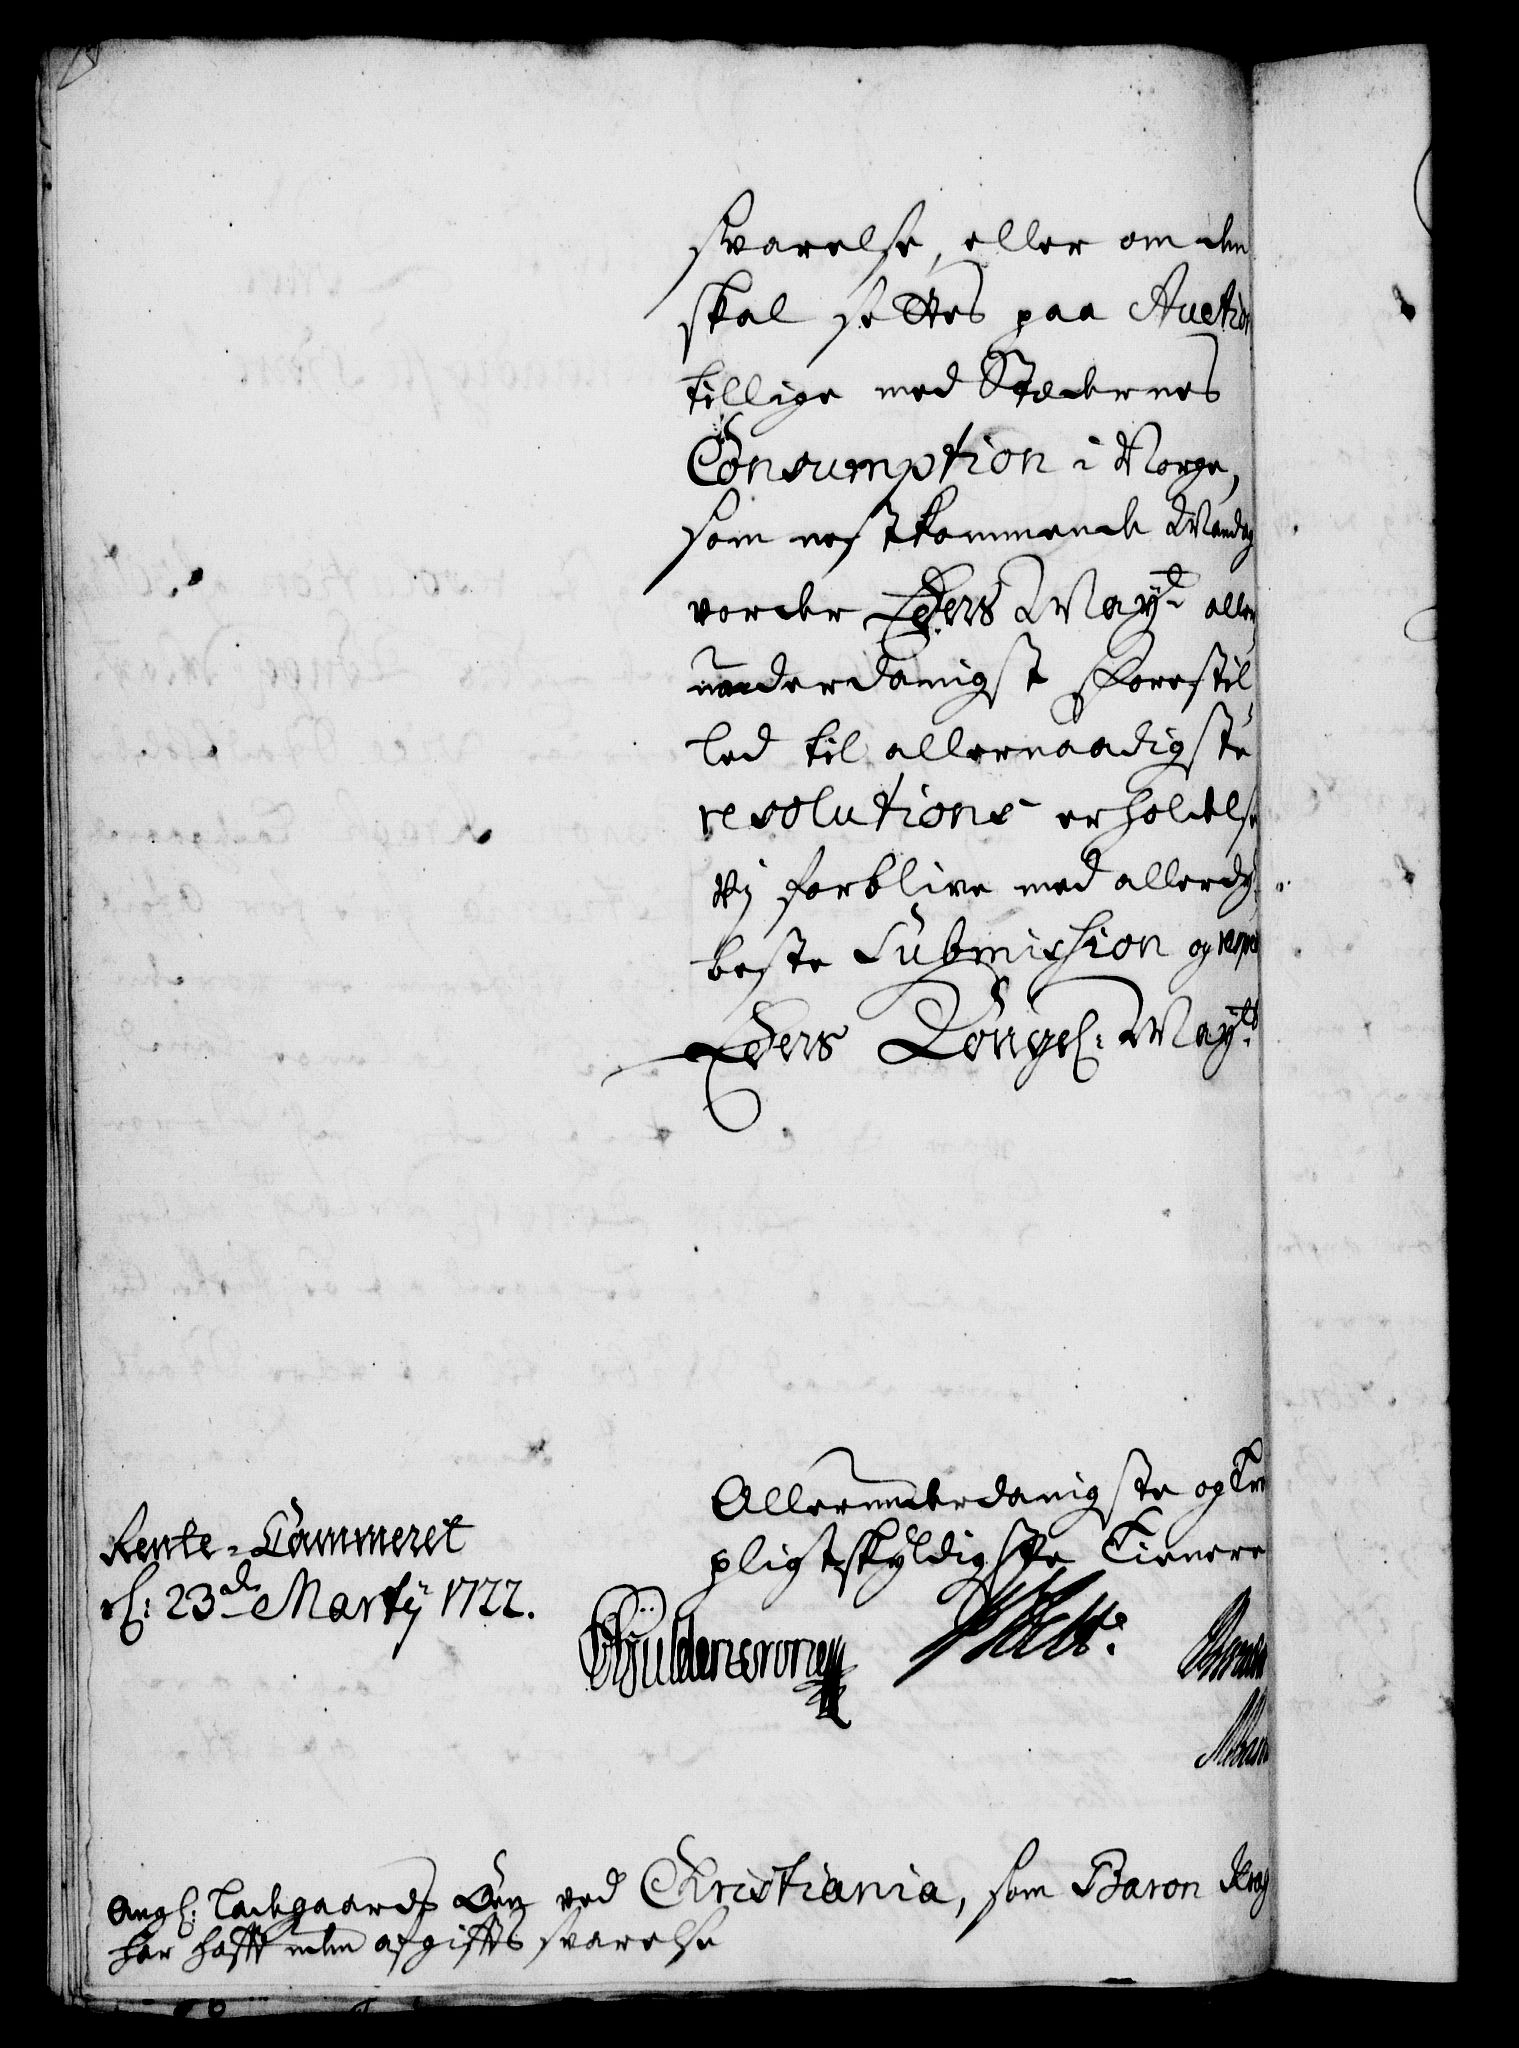 svarelse, eller om den
skal settes paa Auction
tillige med Stædernes
Consumption i Norge,
som nestkommende Mandag
vorder Eders Mayt aller
underdanigst forestil
led til allernaadigste
resolutions erholdelse
Vj forblive med allerdy
beste Submission og respect
Eders Kongel: Mayts
Allerunderdanigste og Tro
pligtskyldigste Tienere
Rente-Cammeret
d: 23de Martij 1722.
CGÿldencrone
Angl: Ladegaards Öen ved Christiania, som Baron Krag
har hafft uden afgiffts svarelse